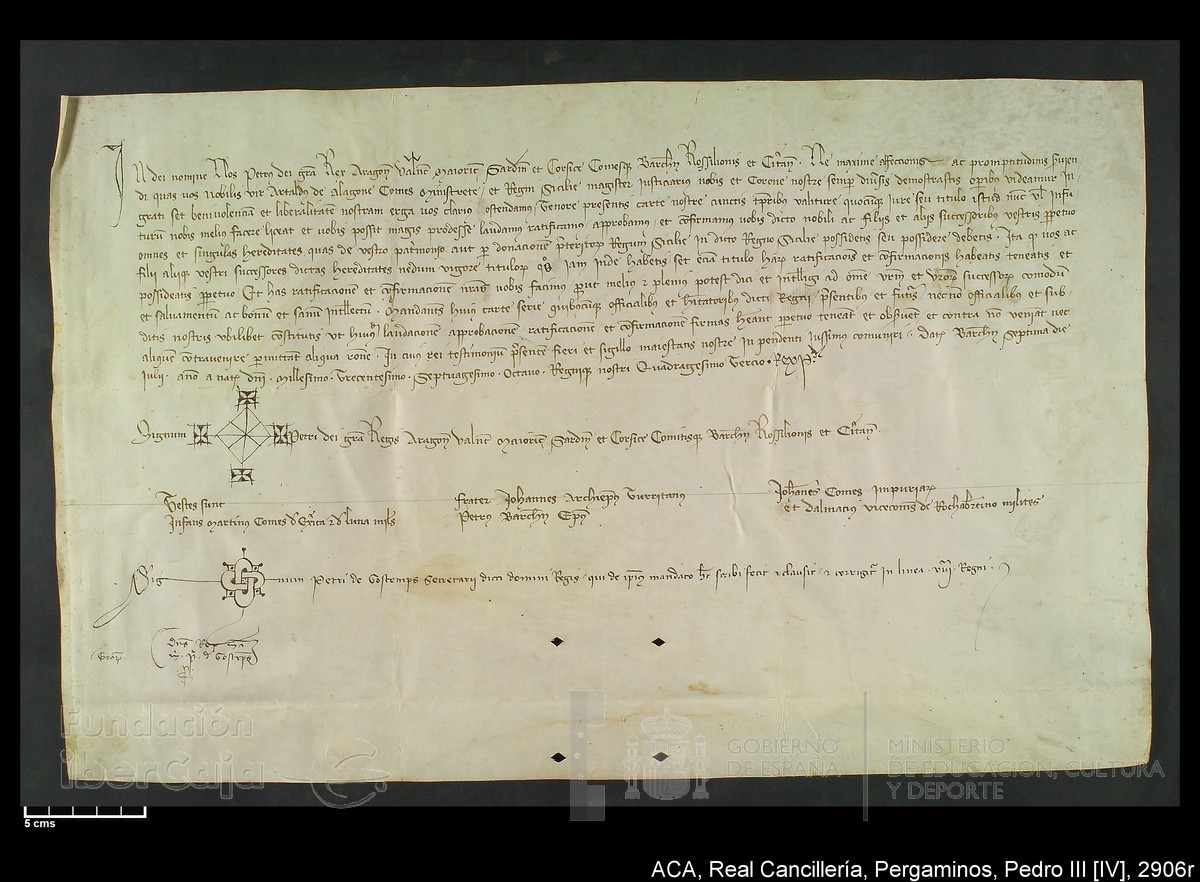 In dei nomine Nos Petrus dei gra Rex Aragon Valenc Maioric Sardin et Corsice Comesq Barchn Rossilionis et Ceritan. Ne maxime affectionis ac promptitudinis fuien
di quas vos Nobilis vir Artaldus de Alagone Comes Ministrete et Regni Sicilie magister Iusticiarius nobis et Corone nostre semp divsis demostrastis opibus videamur In
grati set benivolenciam et liberalitatem nostram erga vos clarius ostendamus Tenore presentis carte nostre cunctis tpribus valiture quocunq Iure seu titulo istud nunc vel Infu
turum nobis melius facere liceat et vobis possit magis prodesse laudamus ratificamus approbamus et confirmamus vobis dicto nobili ac filiis et aliis successoribus vestris perpetuo
omnes et singulas hereditates quas de vestro patrimonio aut per donacione preteritor Regum Sicilie In dicto Regno Sicilie possidetis seu possidere debetis. Ita q vos ac
filii aliiq vestri successores dictas hereditates nedum vigore titulor quos Iam Inde habetis set eciam titulo har ratificacionis et confirmacionis habeatis teneatis et
possideatis perpetuo Et has ratificacionem et confirmacionem vobis facimus prout melius z plenius potest dici et Intelligi ad omne vrm et vror successor comodum
et salvamentum ac bonum et sanum Intellectum. Mandantes huius carte serie quibuscunq officialibus et habitatoribus dicti Regni presentibus et futuris necnon officialibus et sub
ditis nostris ubilibet constitutis ut huiusmodi laudacionem approbacionem ratificacionem et confirmacionem firmas habeant perpetuo teneant et observent et contra non veniant nec
aliquem contravenire permittant aliqua racione. In cuius rei testimonium presentem fieri et sigillo maiestatis nostre In pendenti Iussimus comuniri. Dat Barchn Septima die
Iulii. Anno a nat dni. Millesimo. Trecentesimo. Septuagesimo. Octavo. Regniq nostri Quadragesimo Tercio. Rex P.
Signum Petri dei gra Regis Aragon Valenc Maioric Sardin et Corsice Comitisq Barchn Rossilionis et Ceritan.
Testes sunt
Infans Martinus Comes de Exerica z de Luna miles
Frater Johannes Archiepus Turritanus
Petrus Barchn Epus
Johannes Comes Impuriar
et Dalmacius vicecomes de Rochabertino milites
Sig num Petri de Gostemps Secretarii dicti domini Regis. qui de ipius mandato hec scribi fecit z clausit. z corrigitur In linea. viii. Regni.
Dns Rex
P. de Gostemps
Fundación
iberCaja
GOBIERNO
DE ESPAÑA
MINISTERIO
DE EDUCACIÓN, CULTURA
Y DEPORTE
5 cms
ACA, Real Cancillería, Pergaminos, Pedro III [IV], 2906r